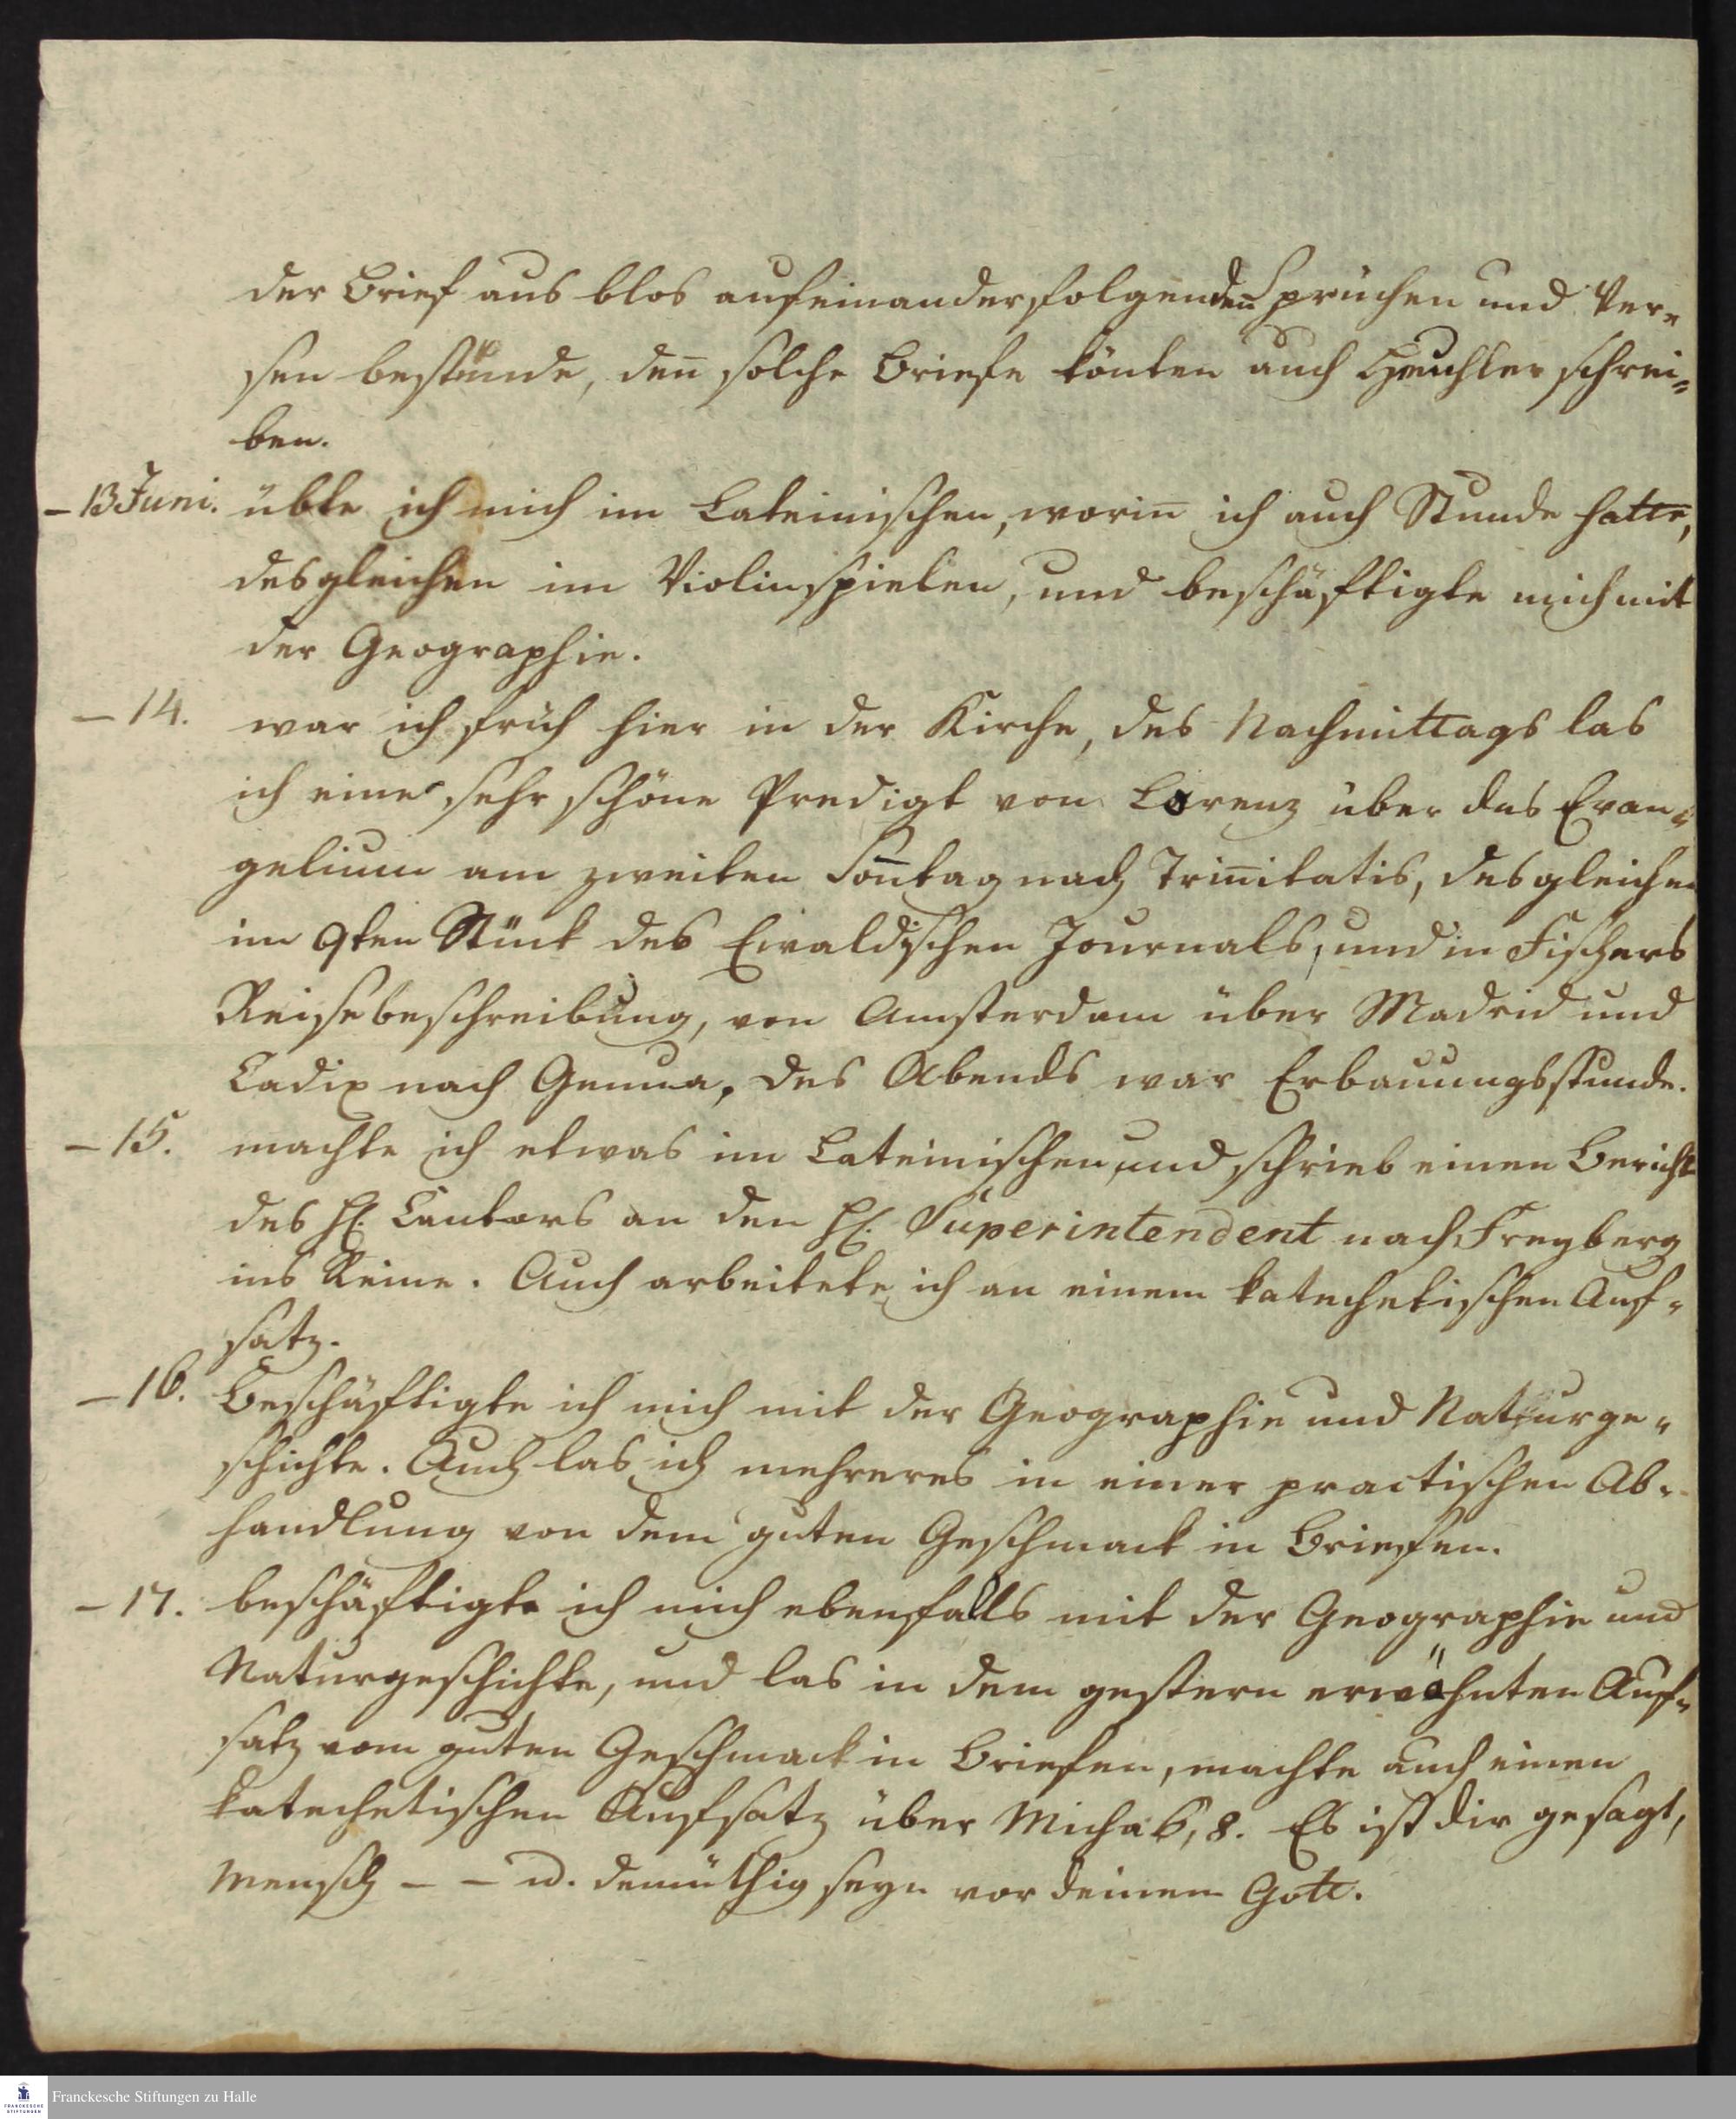 der Brief aus blos aufeinanderfolgenden Sprüchen und Ver-
sen bestünde, den̄ solche Briefe könten auch Heuchler schrei-
ben.
- 13 Juni. übte ich mich im Lateinischen, worin̄ ich auch Stunde hatte,
desgleichen im Violinspielen, und beschäftigte mich mit
der Geographie.
- 14. war ich früh hier in der Kirche, des Nachmittags las
ich eine sehr schöne Predigt von Lorenz über das Evan-
gelium am zweiten Son̄tag nach Trin̄itatis, desgleichen
im 9ten Stück des Ewaldischen Journals, und in Fischers
Reisebeschreibung, von Amsterdam über Madrid und
Cadix nach Genua, des Abends war Erbauungsstunde.
- 15. machte ich etwas im Lateinischen, und schrieb einen Bericht
des H. Cantors an den H. Superintendent nach Freyberg
ins Reine. Auch arbeitete ich an einem katechetischen Auf-
satz.
- 16. Beschäftigte ich mich mit der Geographie und Naturge-
schichte. Auch las ich mehreres in einer practischen Ab-
handlung von dem guten Geschmack in Briefen.
- 17. beschäftigte ich mich ebenfalls mit der Geographie und
Naturgeschichte, und las in dem gestern erwähnten Auf-
satz vom guten Geschmack in Briefen, machte auch einen
katechetischen Aufsatz über Micha 6, 8. Es ist dir gesagt,
Mensch - - u. demüthig seyn vor deinem Gott.
Franckesche Stiftungen zu Halle
FRANCKESCHE
STIFTUNGEN